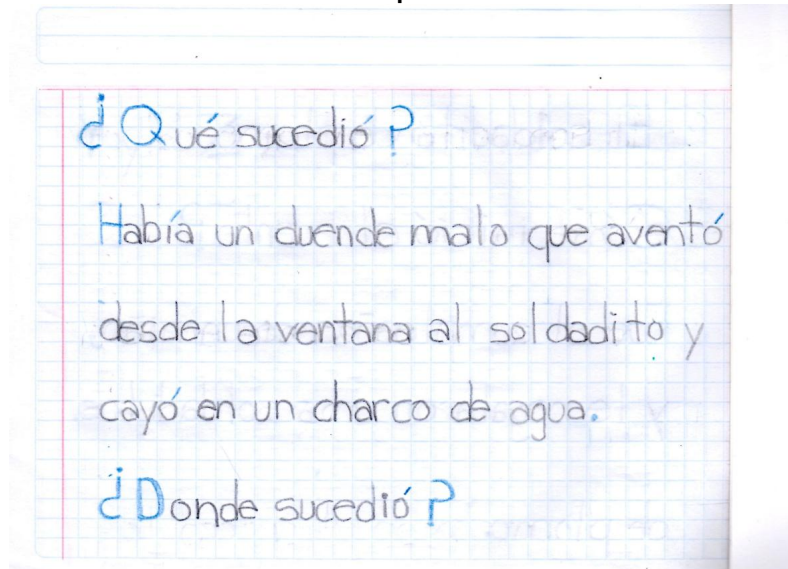 ¿Qué sucedió?
Había un duende malo que aventó
desde la ventana al soldadito y
cayó en un charco de agua.
¿Donde sucedió?